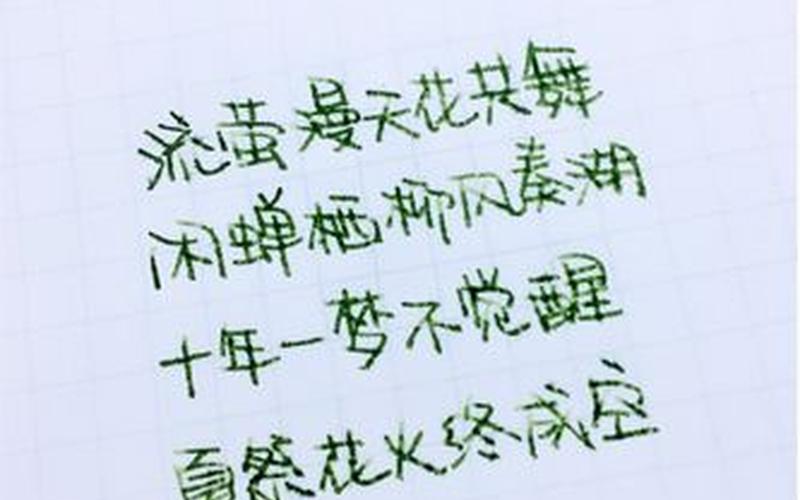 流萤漫天花共舞
闲蝉栖柳风奏湖
十年一梦不觉醒
夏祭花火终成空